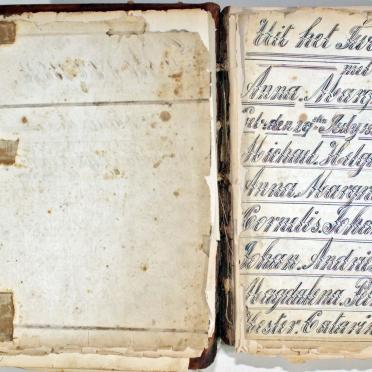 Uit het
met
Anna. Marg
Geb. den 19 ten July
Michael. Helg
Anna. Margr
Cornelis. Joha
Johan. Andri
Magdalena.
Hester. Catarin